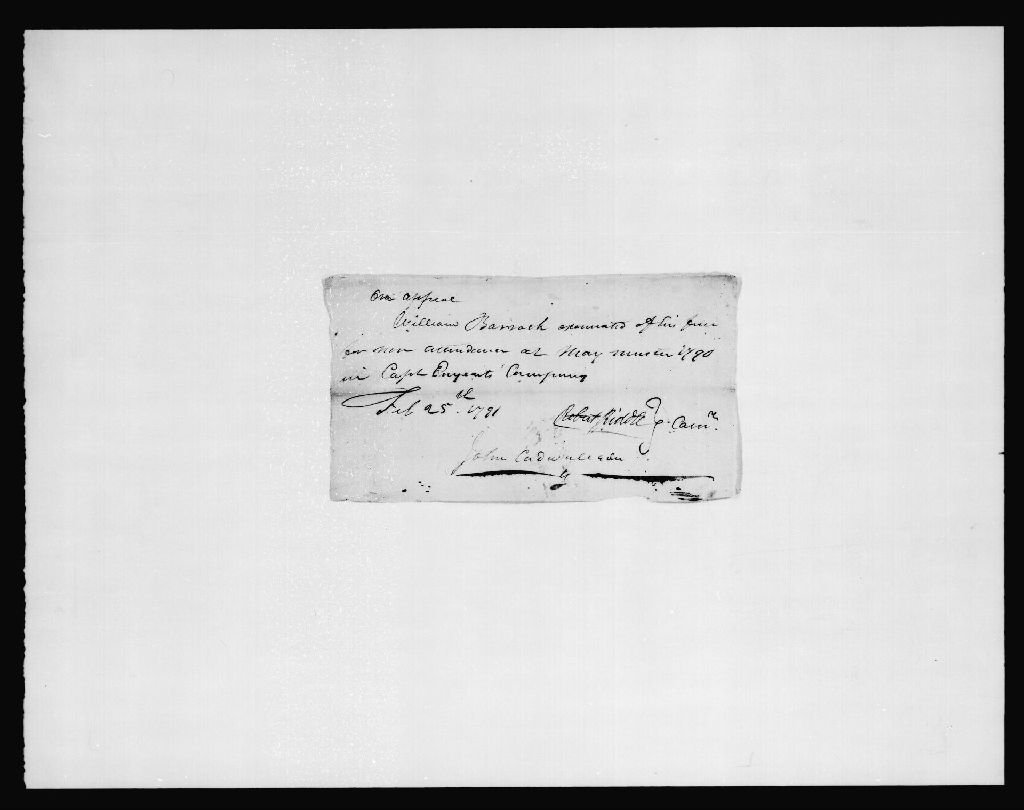 On appeal
William Barrack exonerated of his fine
for non attendance at May muster 1790
in Capt Enyerts Company
Feb 25th 1791
Robert Riddle
John Cadwaleder